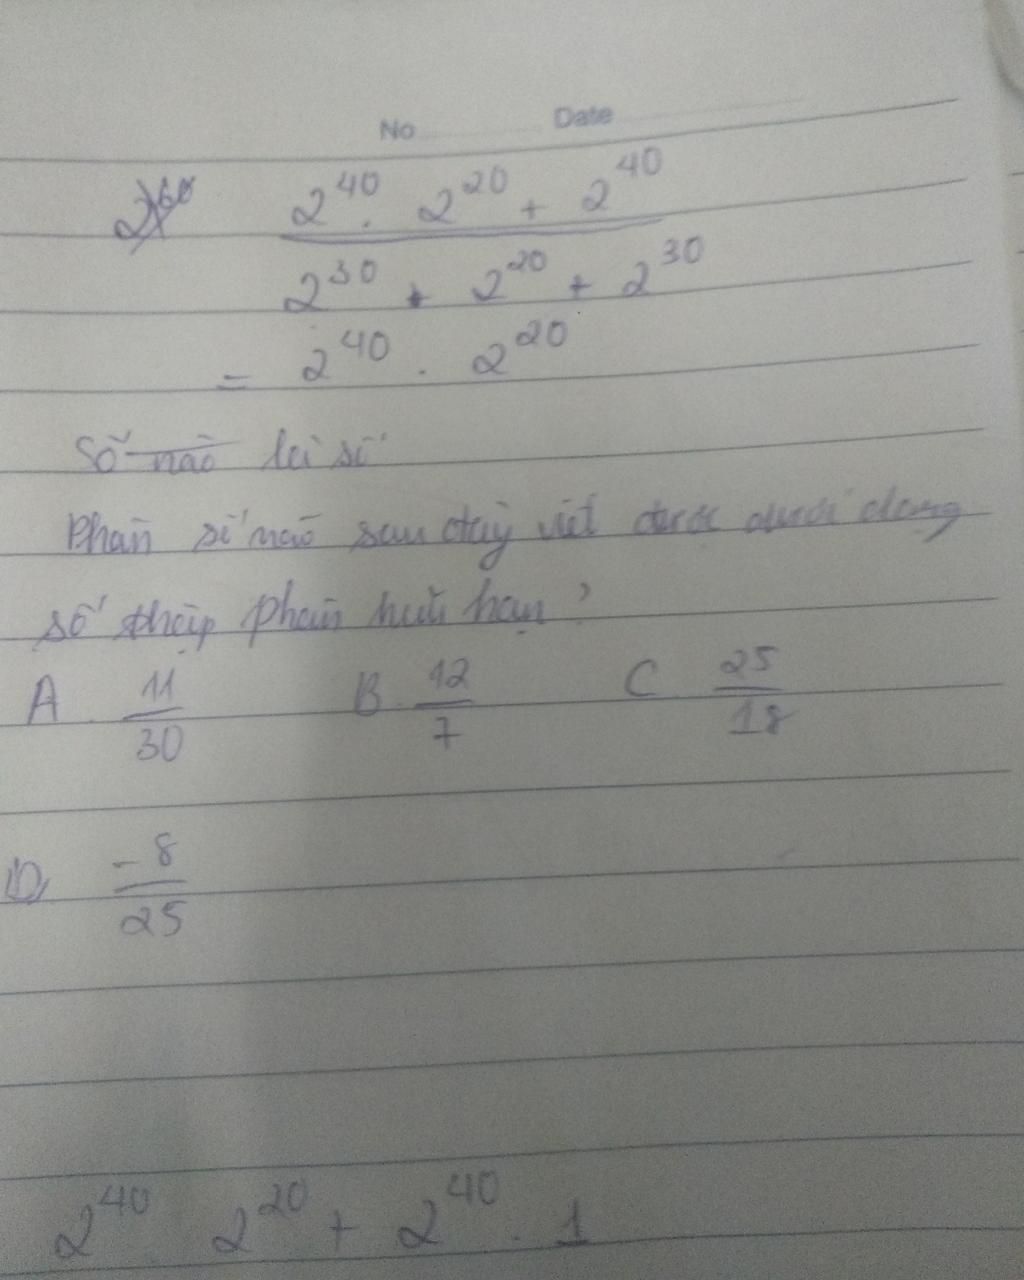 No Date
2^60 2^40 . 2^20 + 2^40
2^30 + 2^20 + 2^30
= 2^40 . 2^20
Số nào là số
Phân số nào sau đây viết được dưới dạng
số thập phân hữu hạn?
A. 11/30 B. 12/7 C. 25/18
D, -8/25
2^40 2^20 + 2^40 . 1